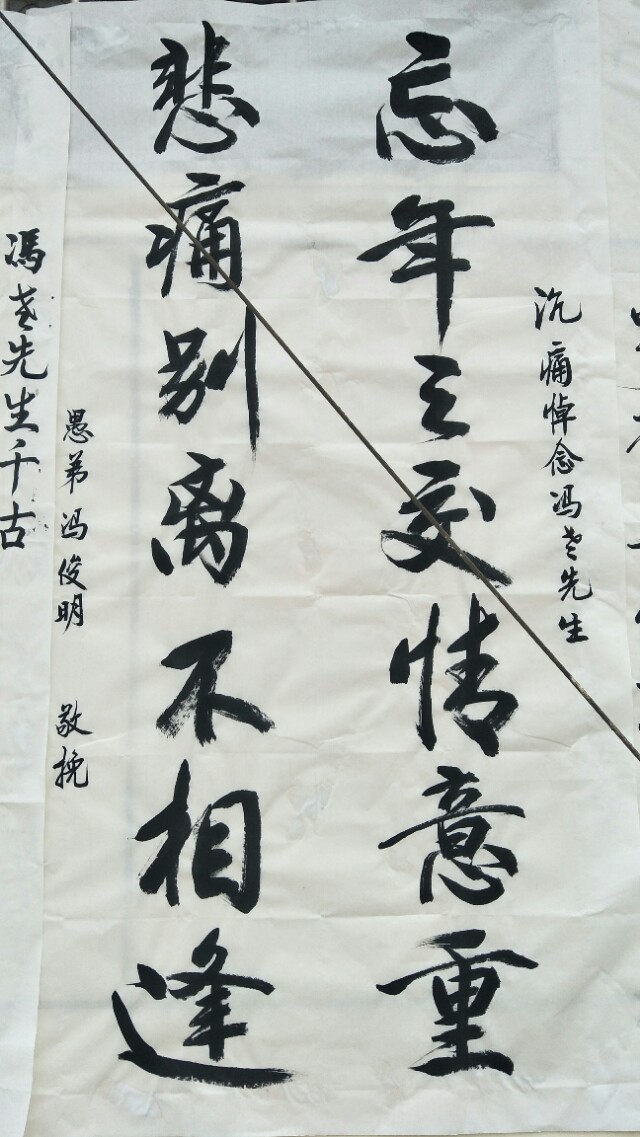 沉痛悼念冯老先生
忘年之交情意重
悲痛别离不相逢
愚弟冯俊明 敬挽
冯老先生千古